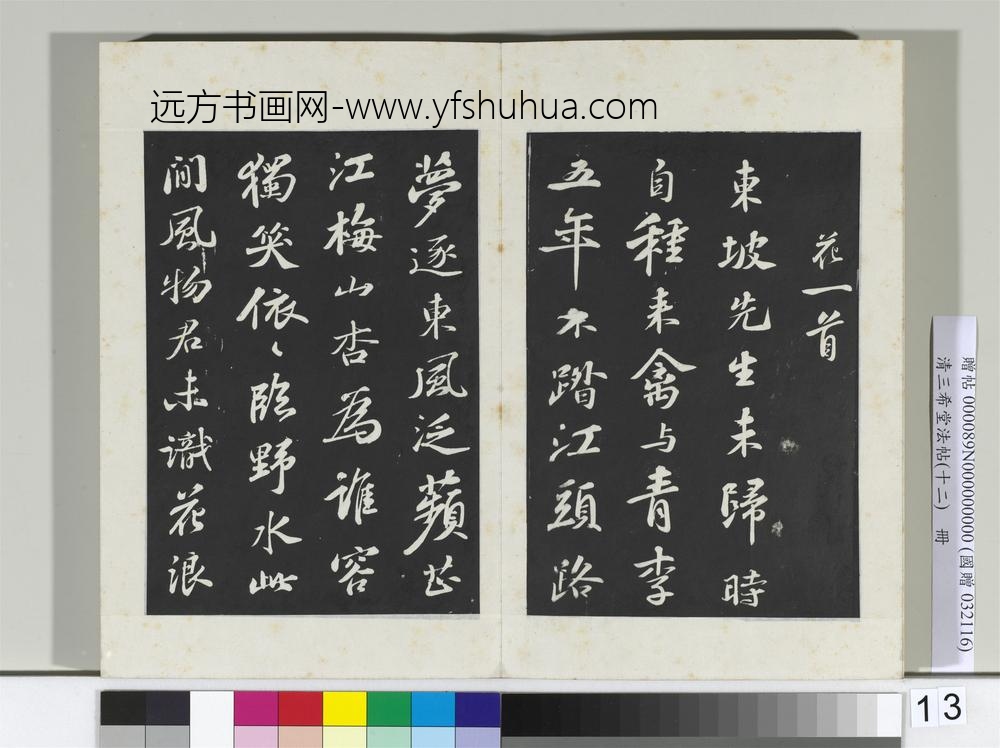 远方书画网-www.yfshuhua.com
花一首
東坡先生未歸時
自種来禽与青李
五年不踏江頭路
夢逐東風泛蘋芷
江梅山杏為誰容
獨笑依〻臨野水此
間風物君未識花浪
贈帖 000089N000000000 (國贈 032116)
清三希堂法帖(十二) 冊
13